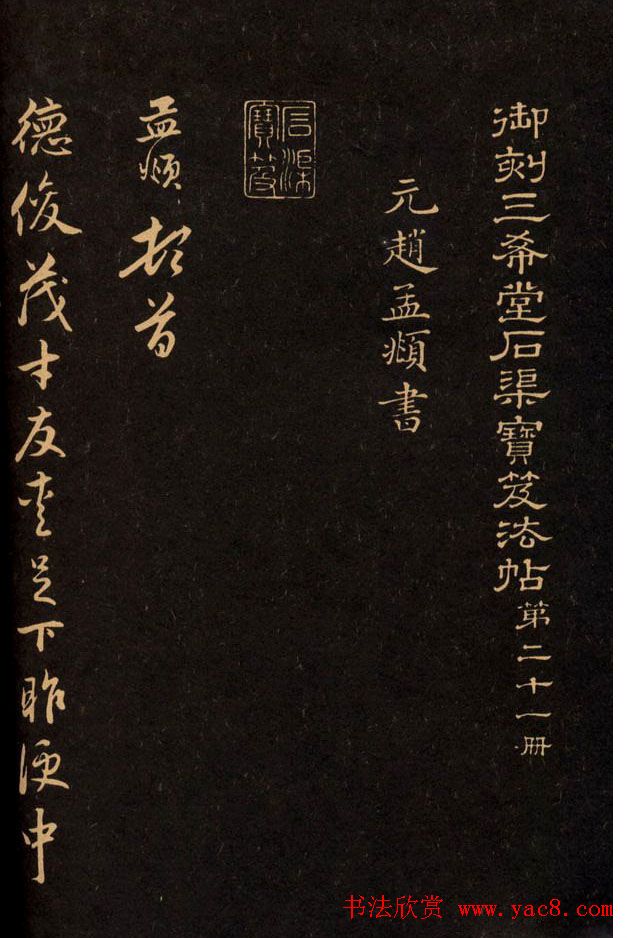 御刻三希堂石渠寶笈法帖第二十一冊
元趙孟頫書
石渠寶笈
孟頫頓首
德俊茂才友愛足下昨便中
书法欣赏 www.yac8.com